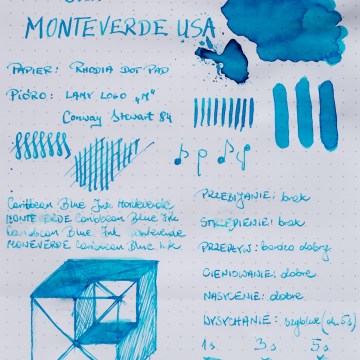 MONTEVERDE USA
PAPIER: RHODIA DOT PAD
PIÓRO: LAMY LOGO „M"
Conway Stewart 84
Caribbean Blue Ink Monteverde
MONTEVERDE Caribbean Blue Ink
Caribbean Blue Ink Monteverde
MONEVERDE Caribbean Blue Ink
PRZEBIJANIE: brak
STRZĘPIENIE: brak
PRZEPŁYW: bardzo dobry
CIENIOWANIE: dobre
NASYCENIE: dobre
WYSYCHANIE: szybkie (ok. 5s)
1s 3s 5s